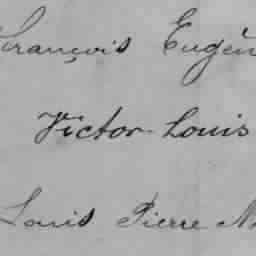 François Eugèn
Victor Louis
Louis Pierre